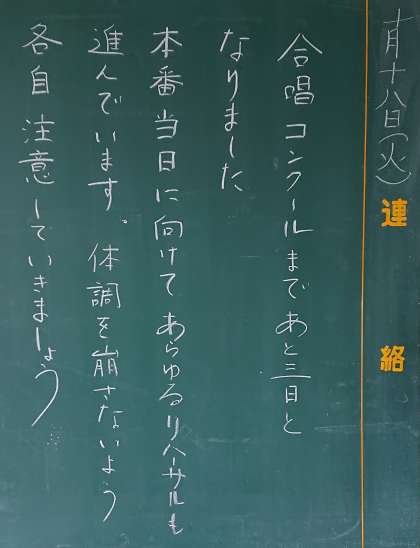 十月十八日(火)
連絡
合唱コンクールまであと三日と
なりました
本番当日に向けてあらゆるリハーサルも
進んでいます。体調を崩さないよう
各自注意していきましょう